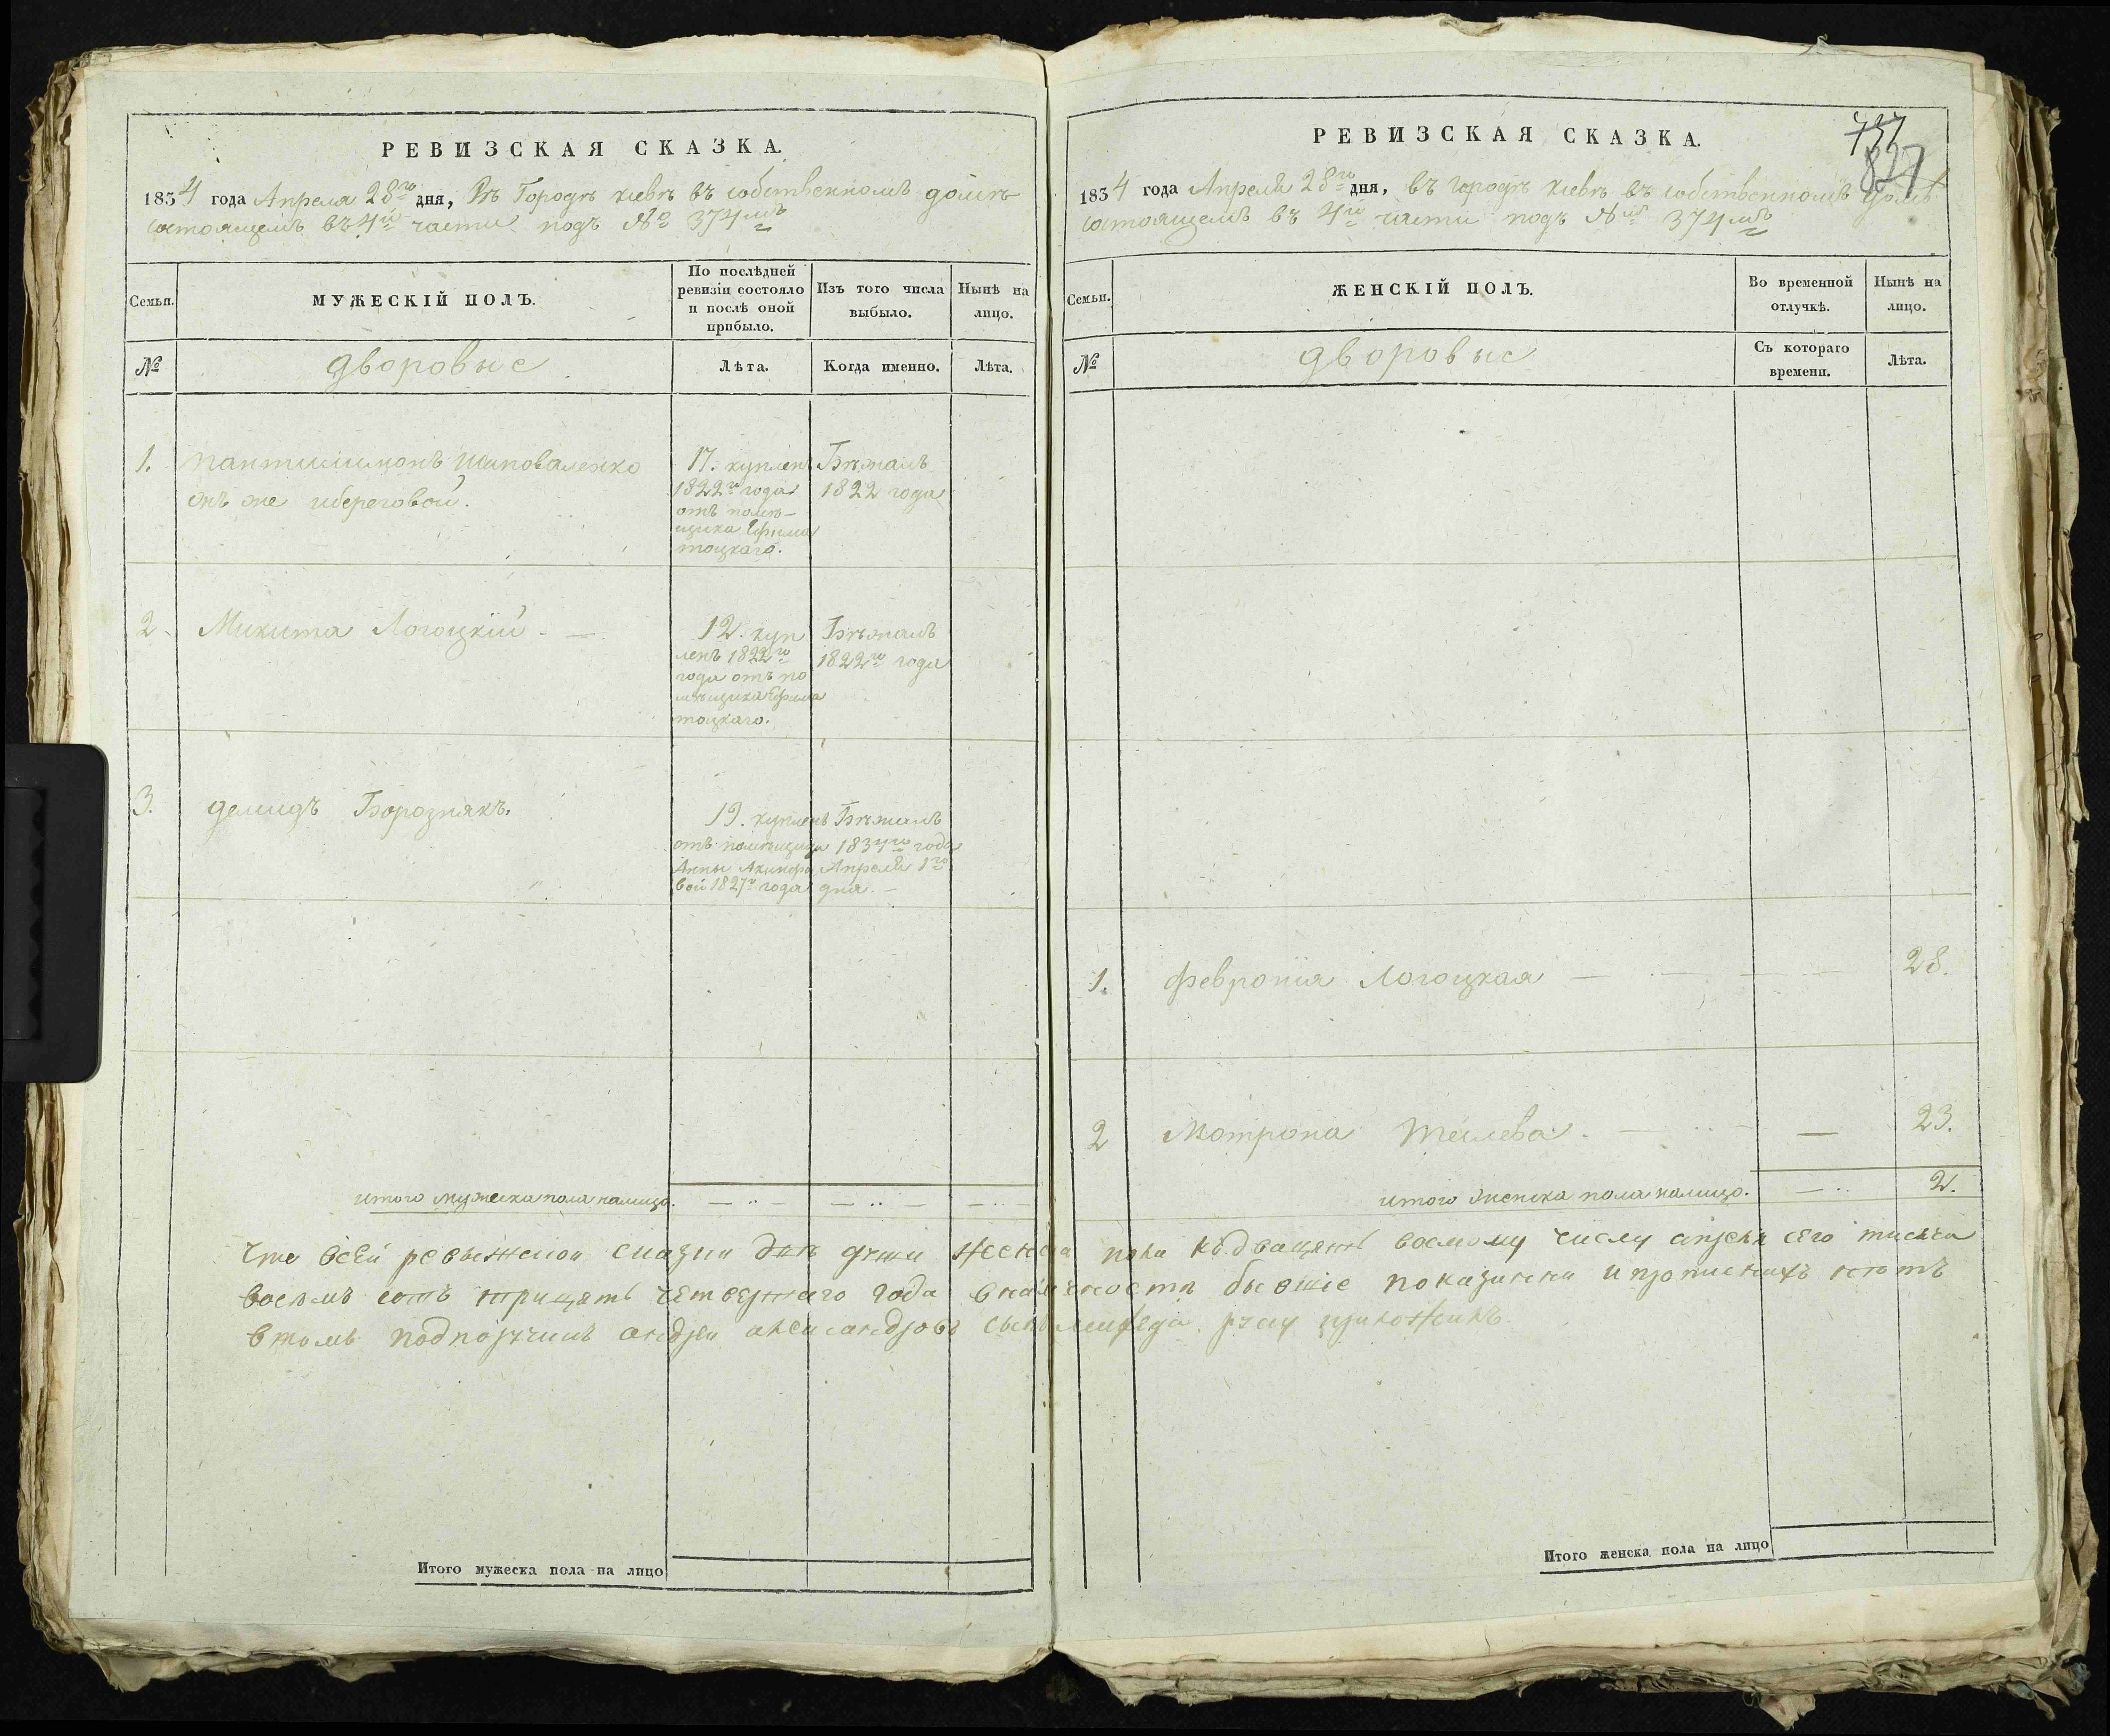 РЕВИЗСКАЯ СКАЗКА.
1834 года Апреля 28го дня, Въ Городѣ Киевѣ въ собственномъ домѣ
состоящемъ въ 4й части подъ № 374мъ
Семьи.
МУЖЕСКІЙ ПОЛЪ.
По послѣдней
ревизіи состояло
и послѣ оной
прибыло.
Изъ того числа
выбыло.
Нынѣ на
лицо.
№
дворовые
Лѣта.
Когда именно.
Лѣта.
1.
Пантилимонъ Шаповаленко
онъ же
17. купленъ
1822го года
отъ помѣ-
щика Ефима
тоцкаго.
Бѣжалъ
1822 года
2.
Микита Логоцкій.
12. куп
ленъ 1822го
года отъ по
мѣщика Ефима
тоцкаго.
Бѣжалъ
1822го года
3.
демидъ Борознякъ.
19. купленъ
отъ помѣщицы
Анны
вой 1827го года
Бѣжалъ
1834го года
Апреля 1го
дня.
итого мужеска пола налицо.
Итого мужеска пола на лицо
РЕВИЗСКАЯ СКАЗКА.
737
827
1834 года Апреля 28го дня, въ городѣ Киевѣ въ собственномъ домѣ
состоящемъ въ 4й части подъ № 374мъ
Семьи.
ЖЕНСКІЙ ПОЛЪ.
Во временной
отлучкѣ.
Нынѣ на
лицо.
№
дворовые
Съ котораго
времени.
Лѣта.
1.
Февронія Логоцкая
28.
2
Мотрона
23.
итого женска пола налицо.
2.
Что всей сказки двѣ души женска пола къ двацять восмому числу апреля сего тисяча
восемъ сотъ трицять четвертаго года бывшие показанни нѣтъ
втомъ андрей александровъ сынъ руку приложилъ.
Итого женска пола на лицо